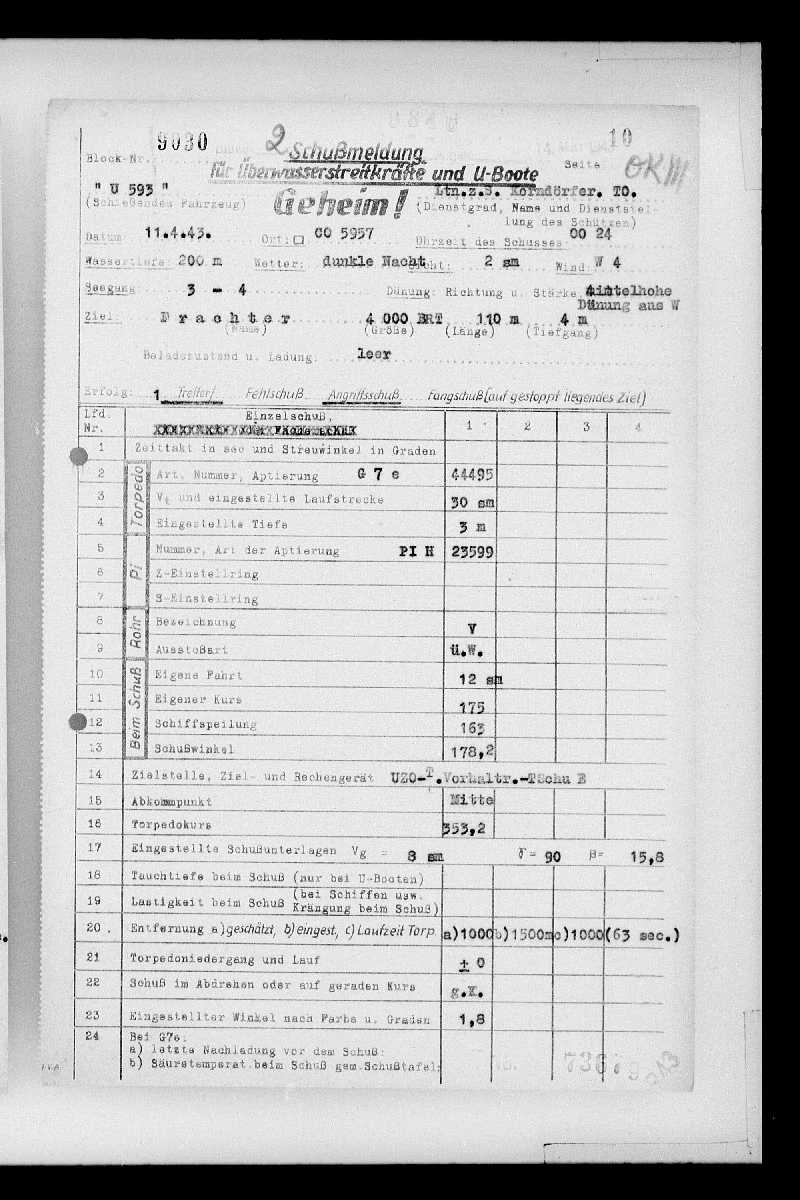 9030
2
10
Schußmeldung
Block-Nr.
Seite
für Überwasserstreitkräfte und U-Boote
OKM
" U 593 "
Ltn.z.S. Korndörfer. TO.
(Schießendes Fahrzeug)
Geheim!
(Dienstgrad, Name und Dienststel-
lung des Schützen)
Datum 11.4.43. Ort: CO 5957 Uhrzeit des Schusses 00 24
Wassertiefe: 200 m Wetter: dunkle Nacht Sicht: 2 sm Wind: W 4
Seegang: 3 - 4 Dünung: Richtung u. Stärke mittelhohe
Dünung aus W
Ziel: Frachter 4 000 BRT 110 m 4 m
(Name) (Größe) (Länge) (Tiefgang)
Beladezustand u. Ladung: leer
Erfolg: 1 Treffer/ Fehlschuß Angriffsschuß Fangschuß (auf gestoppt liegendes Ziel)
Lfd. Nr. Einzelschuß, 1 2 3 4
1 Zeittakt in sec und Streuwinkel in Graden
Torpedo
2 Art, Nummer, Aptierung G 7 e 44495
3 Vt und eingestellte Laufstrecke 30 sm
4 Eingestellte Tiefe 3 m
Pi
5 Nummer, Art der Aptierung PI H 23599
6 Z-Einstellring
7 S-Einstellring
Rohr
8 Bezeichnung V
9 Ausstoßart ü.W.
Beim Schuß
10 Eigene Fahrt 12 sm
11 Eigener Kurs 175
12 Schiffspeilung 163
13 Schußwinkel 178,2
14 Zielstelle, Ziel- und Rechengerät UZO-T.Vorhaltr.-TSchu E
15 Abkommpunkt Mitte
16 Torpedokurs 353,2
17 Eingestellte Schußunterlagen Vg = 8 sm γ= 90 β= 15,8
18 Tauchtiefe beim Schuß (nur bei U-Booten)
19 Lastigkeit beim Schuß (bei Schiffen usw.
Krängung beim Schuß)
20. Entfernung a) geschätzt, b) eingest, c) Laufzeit Torp. a)1000 b)1500m c)1000(63 sec.)
21 Torpedoniedergang und Lauf ± 0
22 Schuß im Abdrehen oder auf geraden Kurs g.K.
23 Eingestellter Winkel nach Farbe u. Graden 1,8
24 Bei G7e:
a) letzte Nachladung vor dem Schuß:
b) Säuretemperat.beim Schuß gem.Schußtafel: